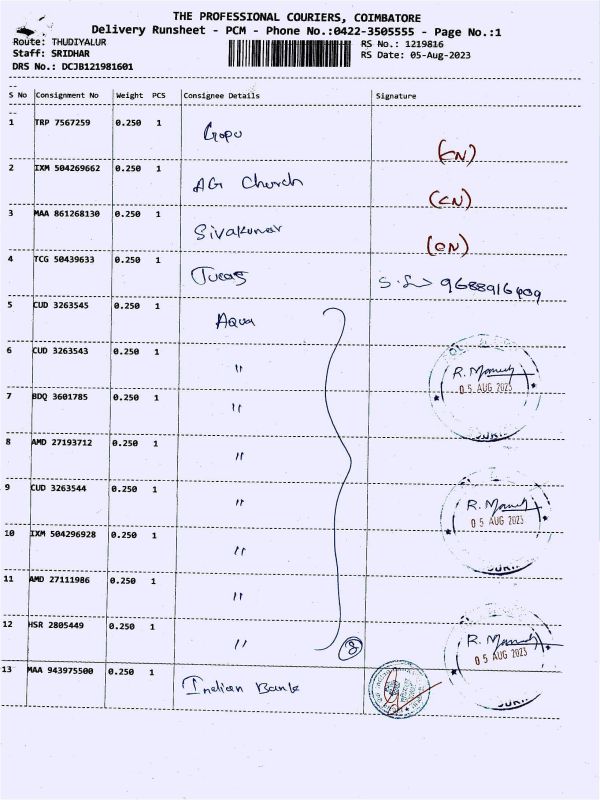 THE PROFESSIONAL COURIERS, COIMBATORE
Delivery Runsheet - PCM - Phone No.:0422-3505555 - Page No.:1
Route: THUDIYALUR RS No.: 1219816
Staff: SRIDHAR RS Date: 05-Aug-2023
DRS No.: DCJB121981601
--
S No Consignment No Weight PCS Consignee Details Signature
--
1 TRP 7567259 0.250 1 Gopu (CN)
2 IXM 504269662 0.250 1 AG Church (CN)
3 MAA 861268130 0.250 1 Sivakumar (CN)
4 TCG 50439633 0.250 1
5 CUD 3263545 0.250 1 Aqua
6 CUD 3263543 0.250 1 "
05 AUG 2023
7 BDQ 3601785 0.250 1 "
8 AMD 27193712 0.250 1 "
9 CUD 3263544 0.250 1 "
05 AUG 2023
10 IXM 504296928 0.250 1 "
11 AMD 27111986 0.250 1 "
12 HSR 2805449 0.250 1 " 8
05 AUG 2023
13 MAA 943975500 0.250 1 Indian Bank